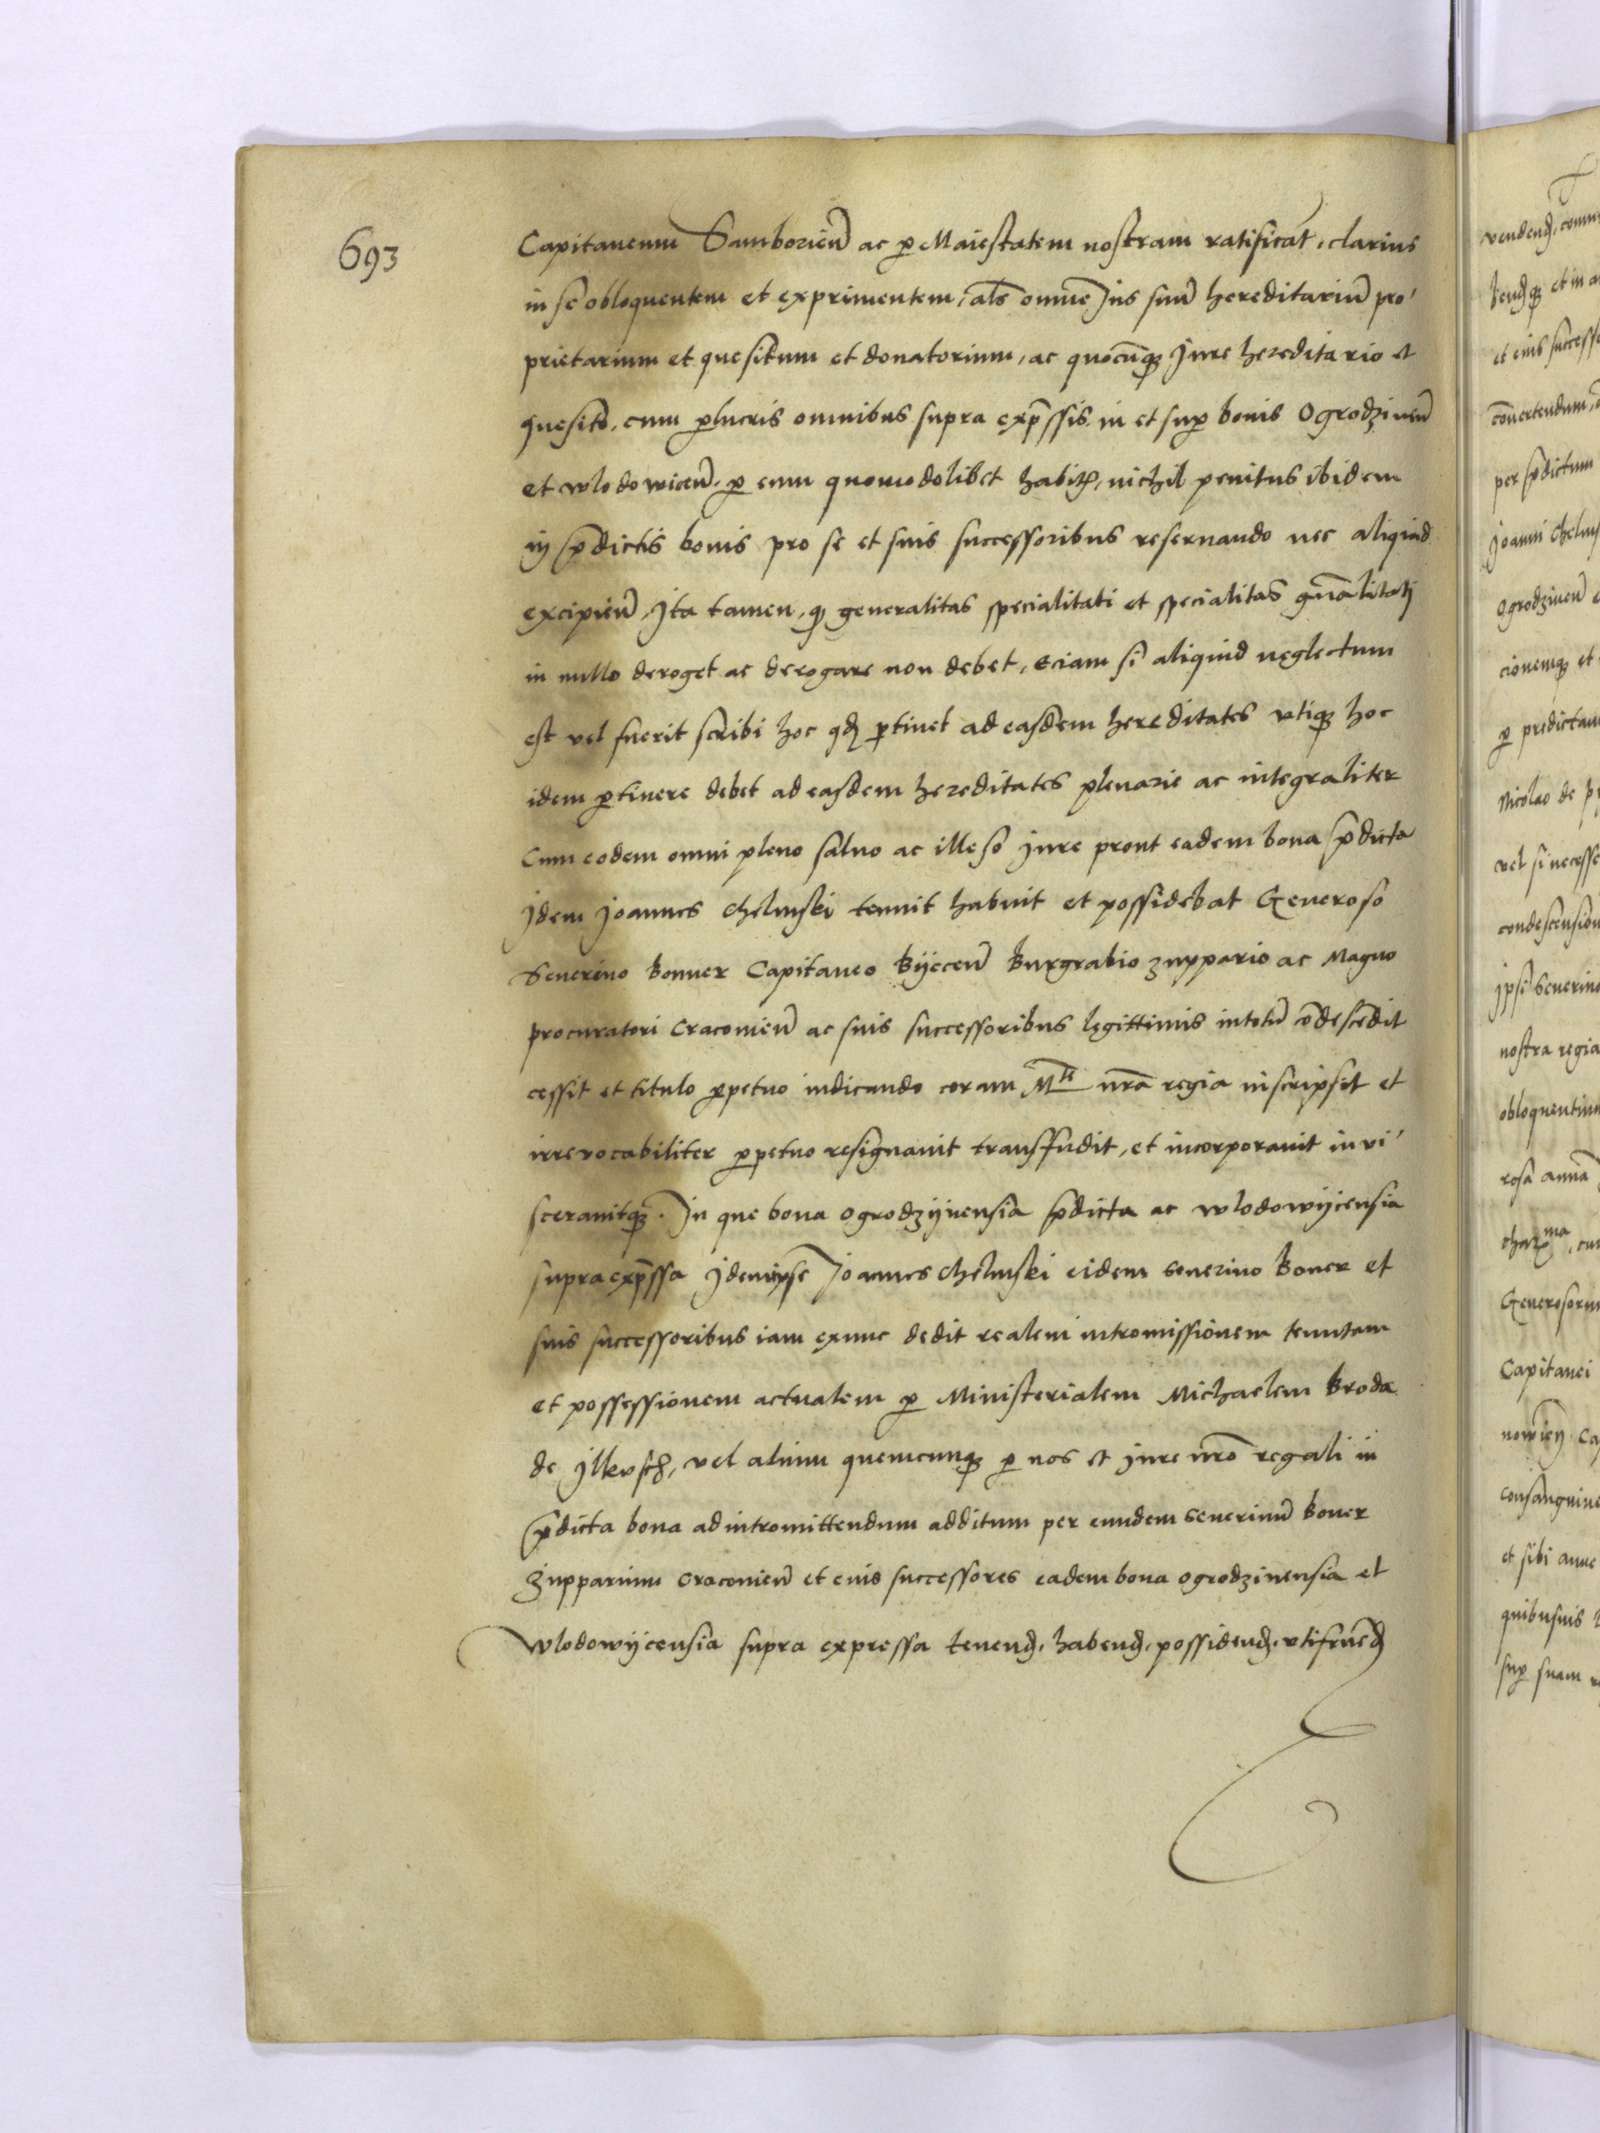 693
Capitaneum Samborien̄ ac ꝑ Maiestatem nostram ratificat̄, clarius
in se obloquentem et exprimentem, al̄s omne Jus suū hereditariū pro
prietarium et quesitum et donatorium, ac quocūqꝫ Jure hereditario et
quesito, cum ꝑlucris omnibus supra exp̄ssis in et suꝑ bonis Ogrodzinen̄
et wlodowicen̄, ꝑ eum quomodolibet habit̄, nichil penitus ibidem
in p̄dictis bonis pro se et suis successoribus reseruando nec aliquid
excipien̄, Ita tamen, ꝙ generalitas specialitati et specialitas gn̄alitati
in nullo deroget ac derogare non debet, Eciam si aliquid neglectum
est vel fuerit scribi hoc qđ ꝑtinet ad easdem hereditates vtiqꝫ hoc
idem ꝑtinere debet ad easdem hereditates plenarie ac integraliter
Cum eodem omni pleno saluo ac illeso Jure prout eadem bona p̄dicta
Jdem Joannes Chelmski tenuit habuit et possidebat Generoso
Seuerino bonner Capitaneo Byeccen̄ Burgrabio zuppario ac Magno
procuratori Cracouien̄ ac suis successoribus legittimis intotū cōdescēdit
cessit et titulo ꝑpetuo iudicando coram Mte nr̄a regia inscripsit et
irreuocabiliter ꝑpetuo resignauit transffudit, et incorporauit invi
sceruitqꝫ. In que bona ogrodzynensia p̄dicta ac wlodowycensia
supra exp̄ssa Jdem ipse Joannes Chelmski eidem seuerino Boner et
suis successoribus iam exnunc dedit realem intromissionem tenutam
et possessionem actualem ꝑ Ministerialem Michaelem Broda
de Jlkusch, vel alium quemcunqꝫ ꝑ nos et Jure nr̄o regali in
p̄dicta bona ad intromittendum additum per eundem seuerinū Boner
Zupparium Cracouien̄ et eius successores eadem bona ogrodzinensia et
Wlodowycensia supra expressa tenend, habend, possidend, vtifruēd